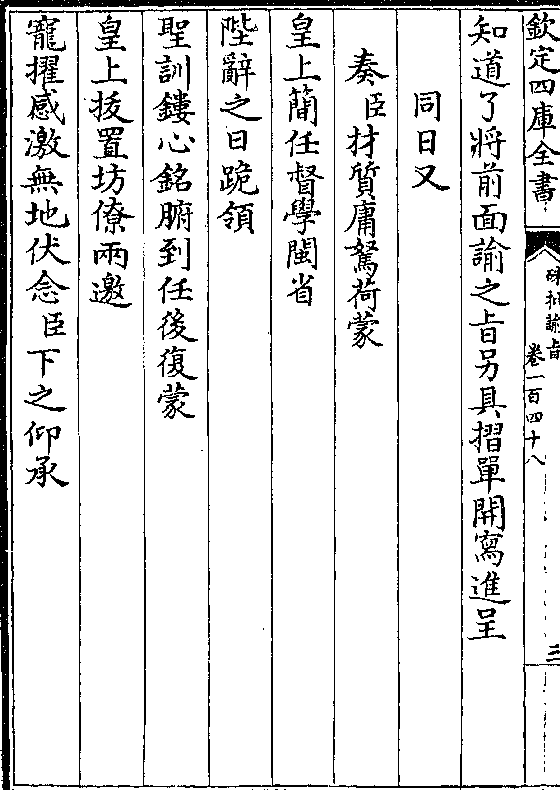 欽定四庫全書
硃批諭旨
卷一百四十八
三
知道了將前面諭之旨另具摺單開寫進呈
同日又
奏臣材質庸駑荷蒙
皇上簡任督學閩省
陛辭之日跪領
聖訓鏤心銘腑到任後復蒙
皇上拔置坊僚兩邀
寵擢感激無地伏念臣下之仰承